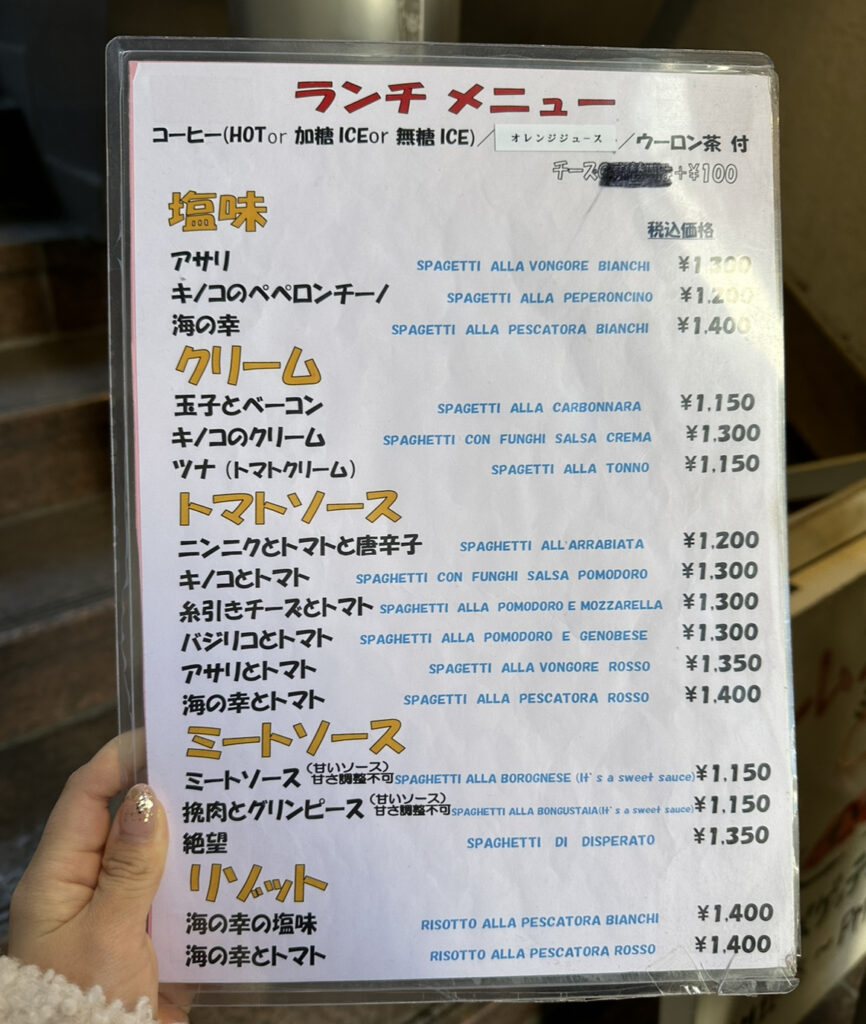 ランチ メニュー
コーヒー(HOTor 加糖 ICEor 無糖 ICE)／オレンジジュース／ウーロン茶 付
チーズ +¥100
塩味
税込価格
アサリ SPAGETTI ALLA VONGORE BIANCHI ¥1,300
キノコのペペロンチーノ SPAGETTI ALLA PEPERONCINO ¥1,200
海の幸 SPAGETTI ALLA PESCATORA BIANCHI ¥1,400
クリーム
玉子とベーコン SPAGETTI ALLA CARBONNARA ¥1,150
キノコのクリーム SPAGHETTI CON FUNGHI SALSA CREMA ¥1,300
ツナ（トマトクリーム） SPAGETTI ALLA TONNO ¥1,150
トマトソース
ニンニクとトマトと唐辛子 SPAGHETTI ALL'ARRABIATA ¥1,200
キノコとトマト SPAGHETTI CON FUNGHI SALSA POMODORO ¥1,300
糸引きチーズとトマト SPAGHETTI ALLA POMODORO E MOZZARELLA ¥1,300
バジリコとトマト SPAGHETTI ALLA POMODORO E GENOBESE ¥1,300
アサリとトマト SPAGETTI ALLA VONGORE ROSSO ¥1,350
海の幸とトマト SPAGETTI ALLA PESCATORA ROSSO ¥1,400
ミートソース
ミートソース（甘いソース）甘さ調整不可 SPAGHETTI ALLA BOROGNESE (It's a sweet sauce) ¥1,150
挽肉とグリンピース（甘いソース）甘さ調整不可 SPAGHETTI ALLA BONGUSTAIA(It's a sweet sauce) ¥1,150
絶望 SPAGHETTI DI DISPERATO ¥1,350
リゾット
海の幸の塩味 RISOTTO ALLA PESCATORA BIANCHI ¥1,400
海の幸とトマト RISOTTO ALLA PESCATORA ROSSO ¥1,400